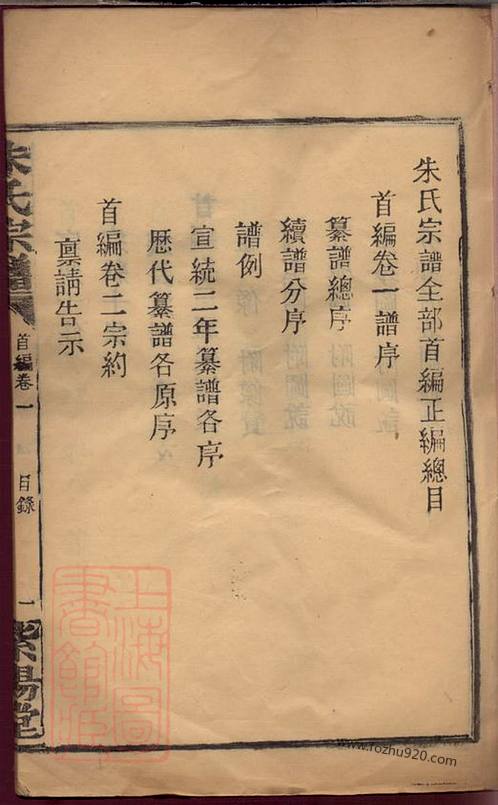 朱氏宗譜全部首編正編總目
首編卷一譜序
纂譜總序
續譜分序
譜例
宣統二年纂譜各序
歷代纂譜各原序
首編卷二宗約
稟請告示
朱氏宗譜
首編卷一
目錄
一
紫陽堂
上海圖書館藏
www.fozhu920.com